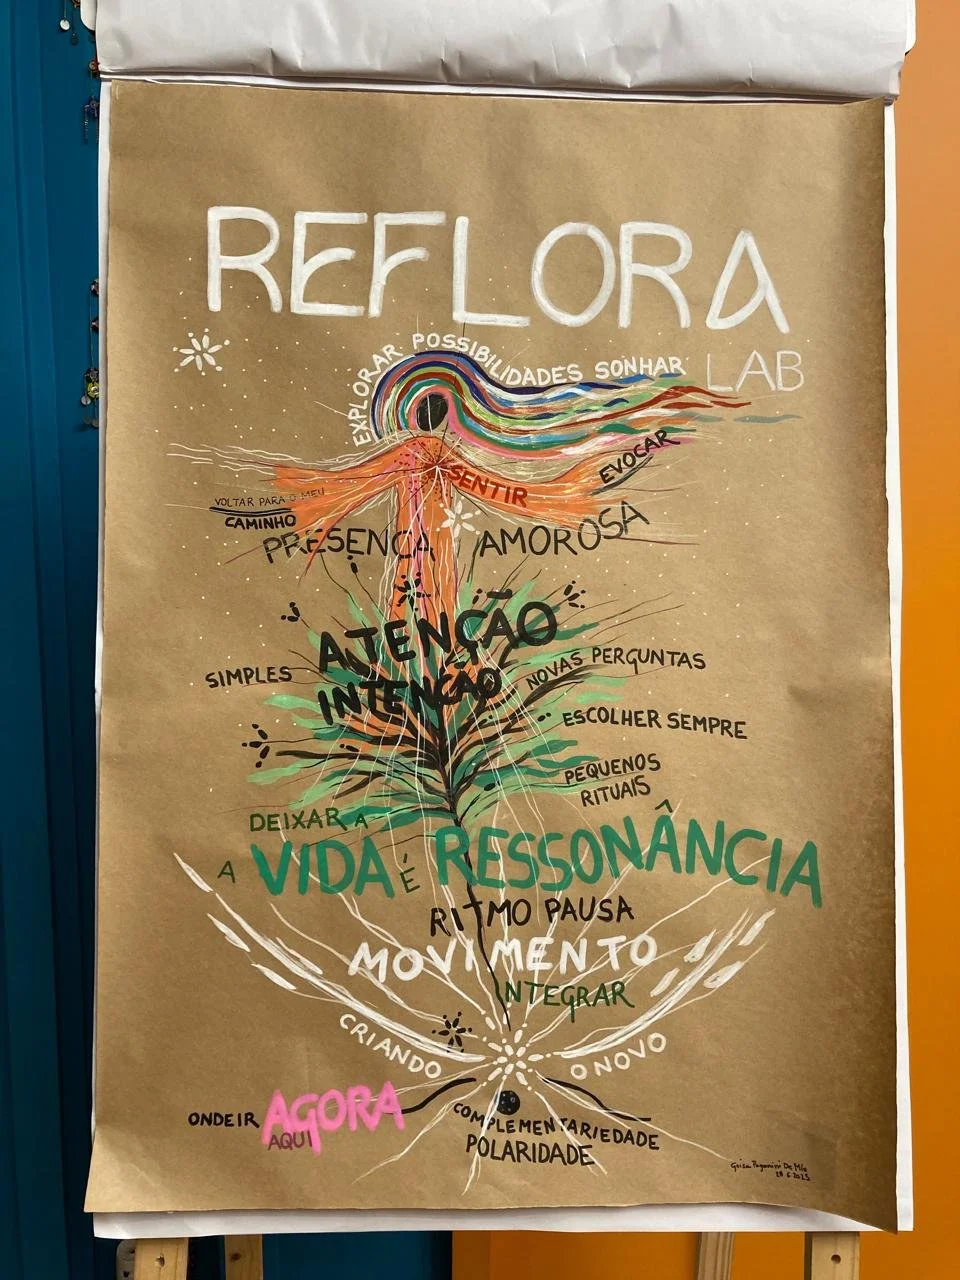 REFLORA
LAB
EXPLORAR POSSIBILIDADES SONHAR
EVOCAR
SENTIR
VOLTAR PARA O MEU
CAMINHO
PRESENÇA AMOROSA
ATENÇÃO
INTENÇÃO
SIMPLES
NOVAS PERGUNTAS
ESCOLHER SEMPRE
PEQUENOS
RITUAIS
DEIXAR A
A VIDA É RESSONÂNCIA
RITMO PAUSA
MOVIMENTO
INTEGRAR
CRIANDO O NOVO
ONDE IR AGORA
AQUI
COMPLEMENTARIEDADE
POLARIDADE